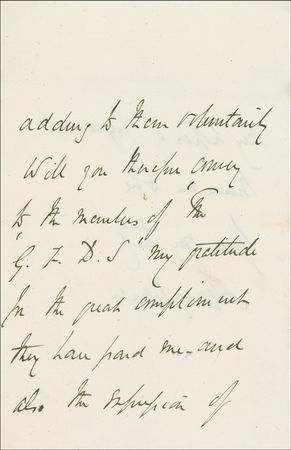 adding to them voluntarily
Will you therefore, convey
to the members of "The
G. F. D. S" my gratitude
for the great compliment
they have paid me—and
also the expression of